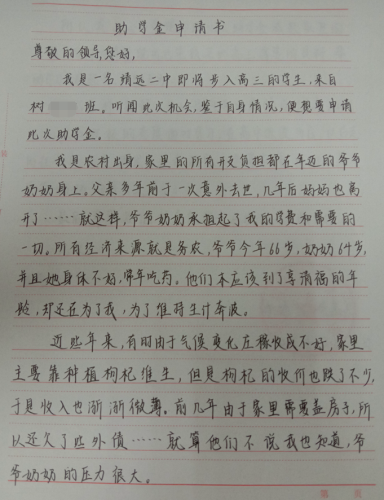 助学金申请书
尊敬的领导,您好,
我是一名靖远二中即将步入高三的学生,来自
树 班。听闻此次机会,鉴于自身情况,便想要申请
此次助学金。
我是农村出身,家里的所有开支负担都在年迈的爷爷
奶奶身上。父亲多年前于一次意外去世,几年后妈妈也离
开了……就这样,爷爷奶奶承担起了我的学费和需要的
一切。所有经济来源就是务农,爷爷今年66岁,奶奶64岁,
并且她身体不好,常年吃药。他们本应该到了享清福的年
龄,却还在为了我,为了维持生计奔波。
近些年来,有时由于气候变化庄稼收成不好,家里
主要靠种植枸杞维生,但是枸杞的收价也跌了不少,
于是收入也渐渐微薄。前几年由于家里需要盖房子,所
以还欠了些外债……就算他们不说我也知道,爷
爷奶奶的压力很大。